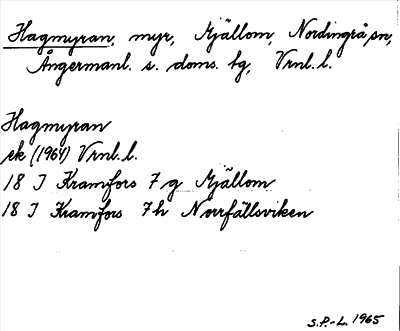 Hagmyran, myr, Mjällom, Nordingrå sn,
Ångermanl. s. doms. tg, Vrnl. l.
Hagmyran
ek (1964) Vrnl. l.
18 I Kramfors 7 g Mjällom
18 I Kramfors 7h Norrfällsviken
S.P.-L. 1965